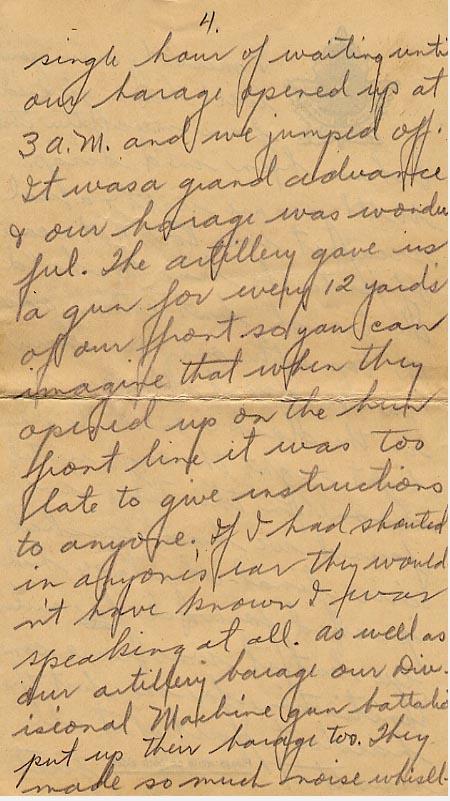 4.
single hour of waiting until
our barage opened up at
3 a.m. and we jumped off.
It was a grand advance
& our barage was wonder
ful. The artillery gave us
a gun for every 12 yards
of our front so you can
imagine that when they
opened up on the hun
front line it was too
late to give instructions
to anyone. If I had shouted
in anyone's ear they would
n't have known I was
speaking at all. As well as
our artillery barage our Div-
isional Machine gun battalio
put up their barage too. They
made so much noise whistl-